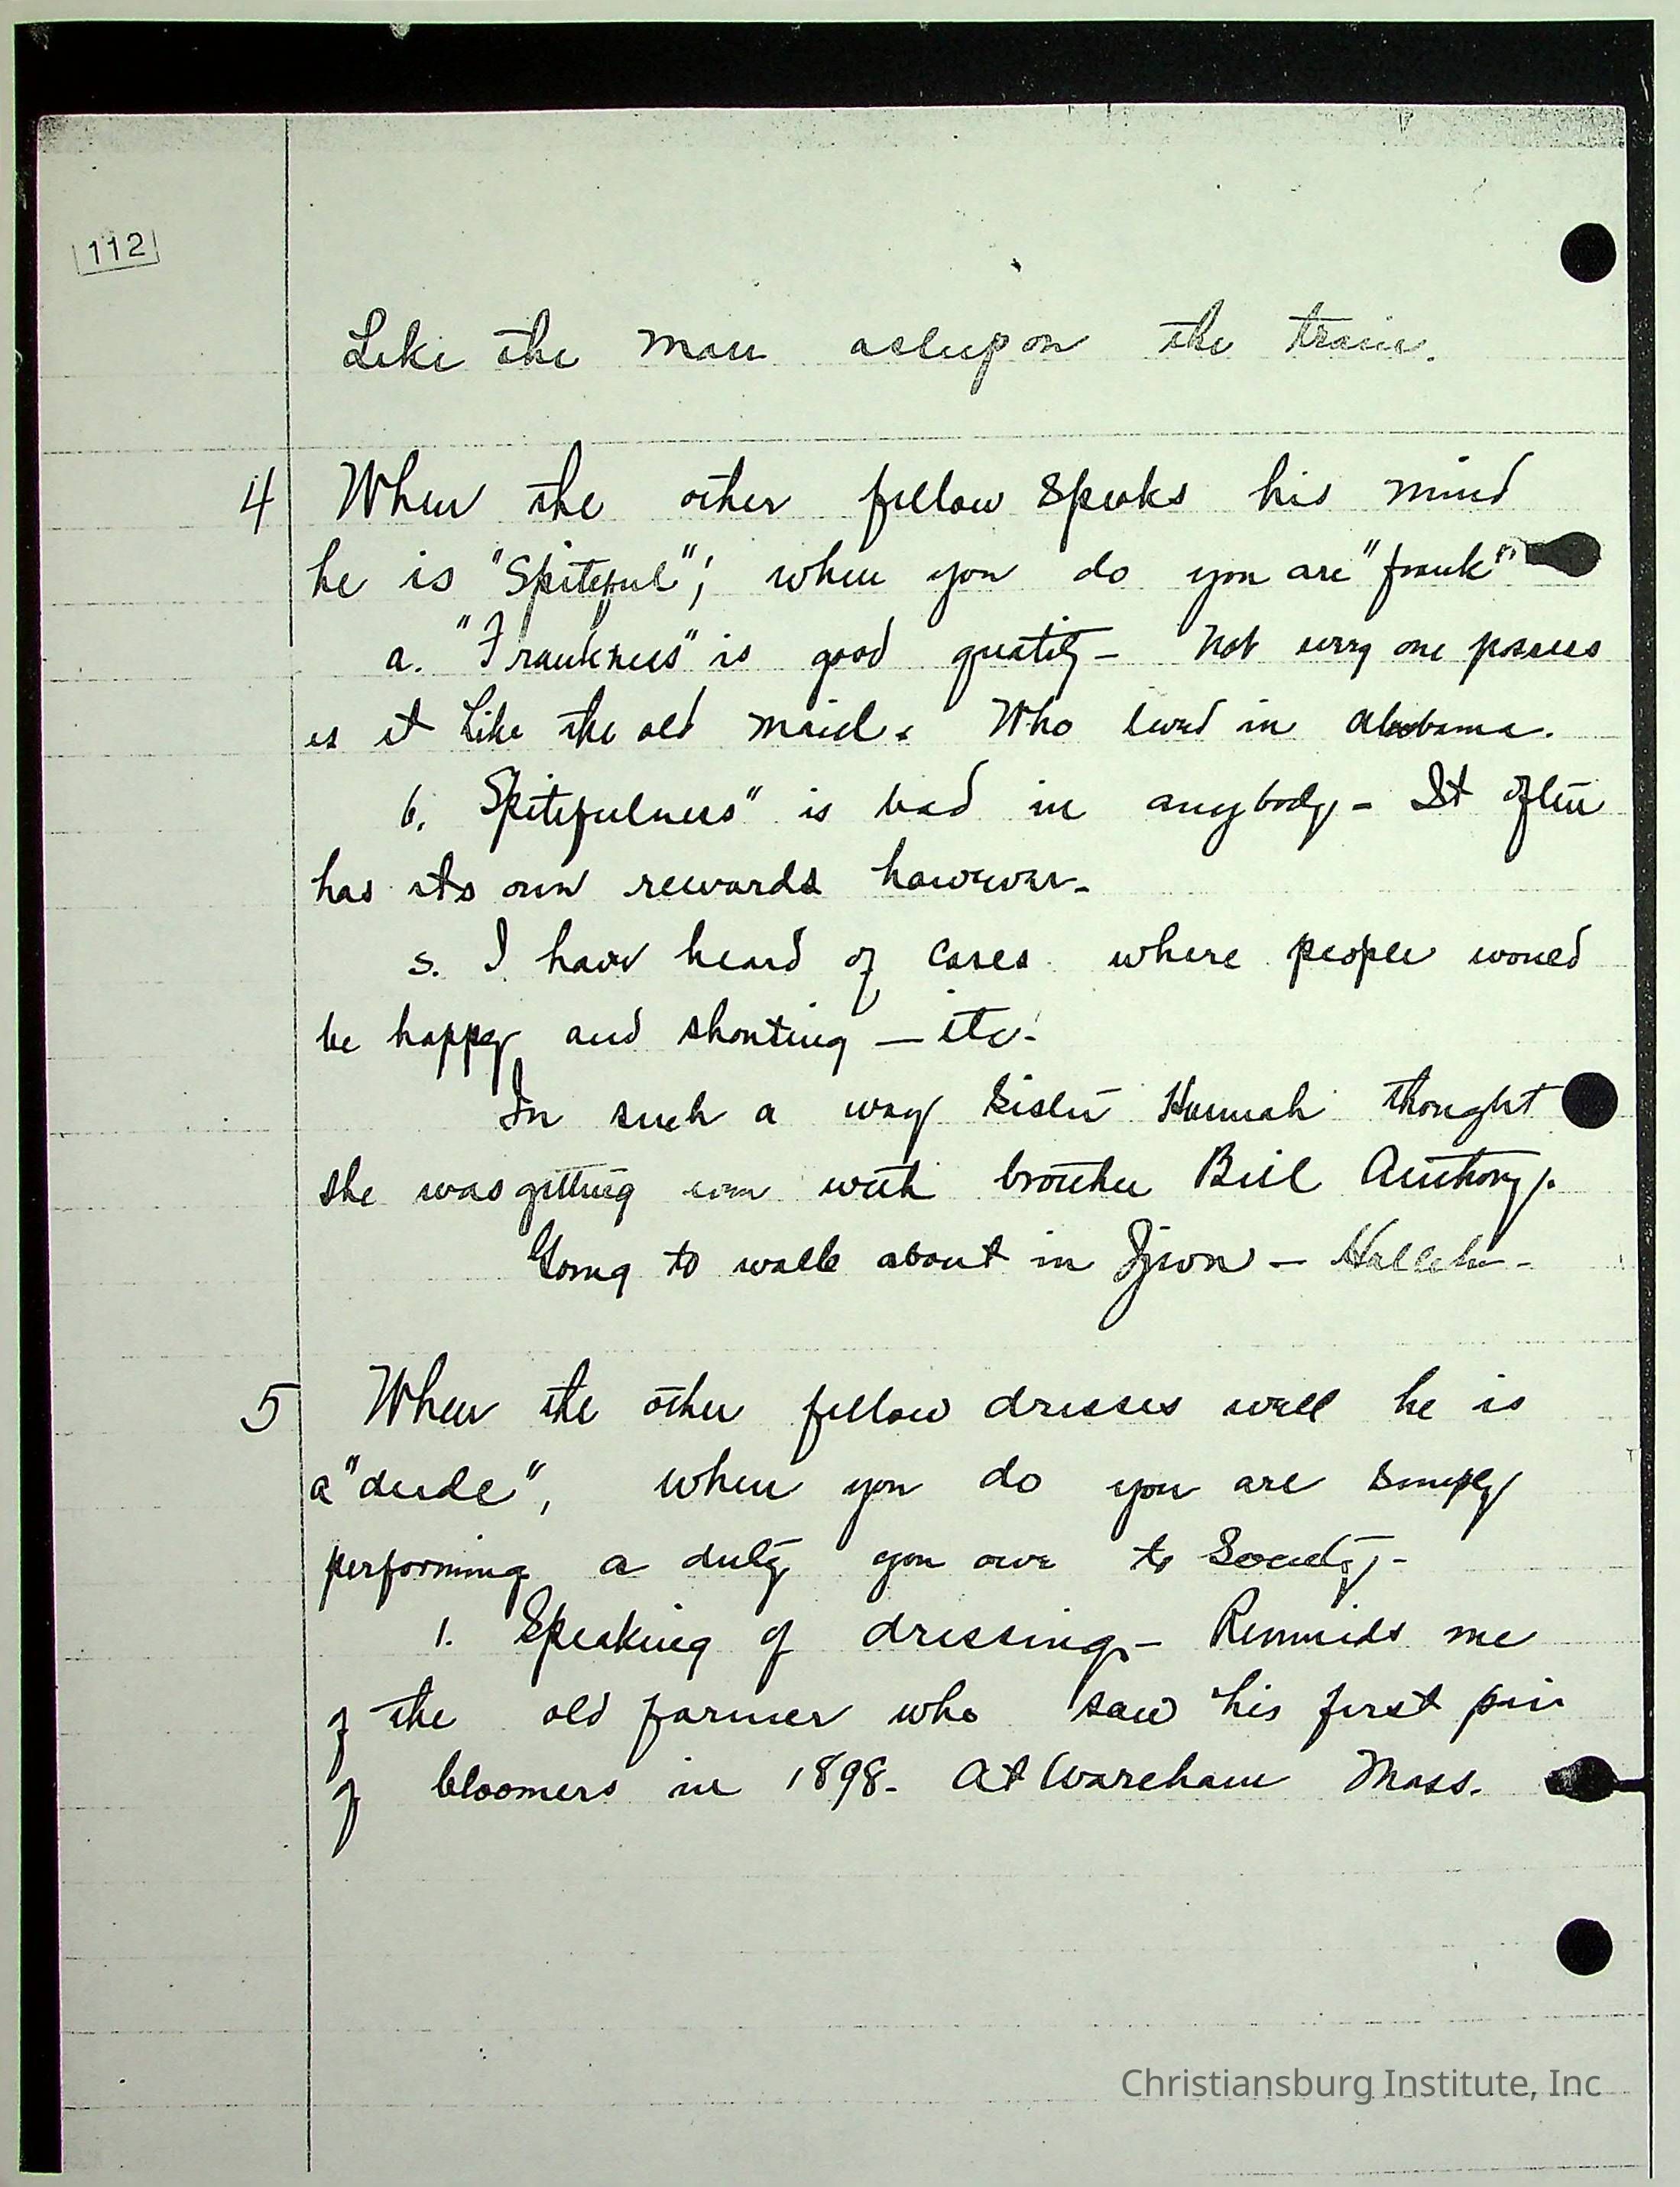 112
Like the man asleep on the train.
4 When the other fellow speaks his mind
he is "Spiteful"; when you do you are "frank"
a. "Frankness" is good quality - Not every one possess
es it Like the old maid. Who lived in Alabama.
b. Spitefulness" is bad in anybody - It often
has its own rewards however -
s. I have heard of cases where people would
be happy and shouting - etc.
In such a way Sister Hannah thought
she was getting with brother Bill Anthony.
Going to walk about in Zion -
5 When the other fellow dresses well he is
a "dude", when you do you are simply
performing a duty you owe to Society -
1. Speaking of dressing - Reminds me
of the old farmer who saw his first pair
of bloomers in 1898. At Wareham Mass.
Christiansburg Institute, Inc